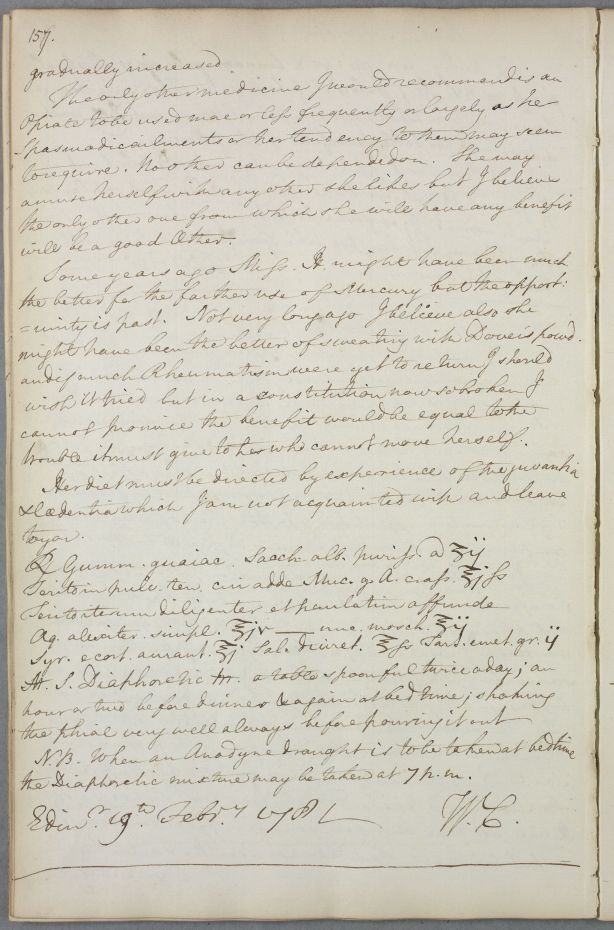 157.
gradually increased
The only other medicine I would recommend is an
Opiate to be used more or less frequently or largely as her
spasmodic ailments or her tendency to them may seem
to require. No other can be depended on. She may
amuse herself with any other she likes but I believe
the only other one from which she will have any benefit
will be a good Other.
Some years ago Miss. H. might have been much
the better for the farther use of Mercury but the opport:
=unity is past. Not very long ago I believe also she
might have been the better of sweating with Dover's powd.
and if much Rheumatism were yet to return I should
wish it tried but in a constitution now so broken I
cannot promise the benefit would be equal to the
trouble it must give to her who cannot move herself.
Her diet must be directed by experience of the juvantia
& Lædentia which I am not acquainted with and leave
to you.
℞ Gumm. guaiac. Sacch. alb. puriss. a ʒij
Terito in pulv. ten. cui adde Muc. g. A. crass. ʒjſs
Terito iterum diligenter et paulatim affunde
Aq. alexiter. simpl. ℥jv — nuc. mosch. ℥ij
Syr. e cort. aurant. ℥j Sal. diuret. ℥ſs Tart. emet. gr. ij
M. S. Diaphoretic Mr. a table spoonful twice a day; an
hour or two before dinner & again at bed time; shaking
the phial very well always before pouring it out
N.B. When an Anodyne draught is to be taken at bedtime
the Diaphoretic mixture may be taken at 7 p.m.
Edinr. 19th. Febry 1781 W.C.